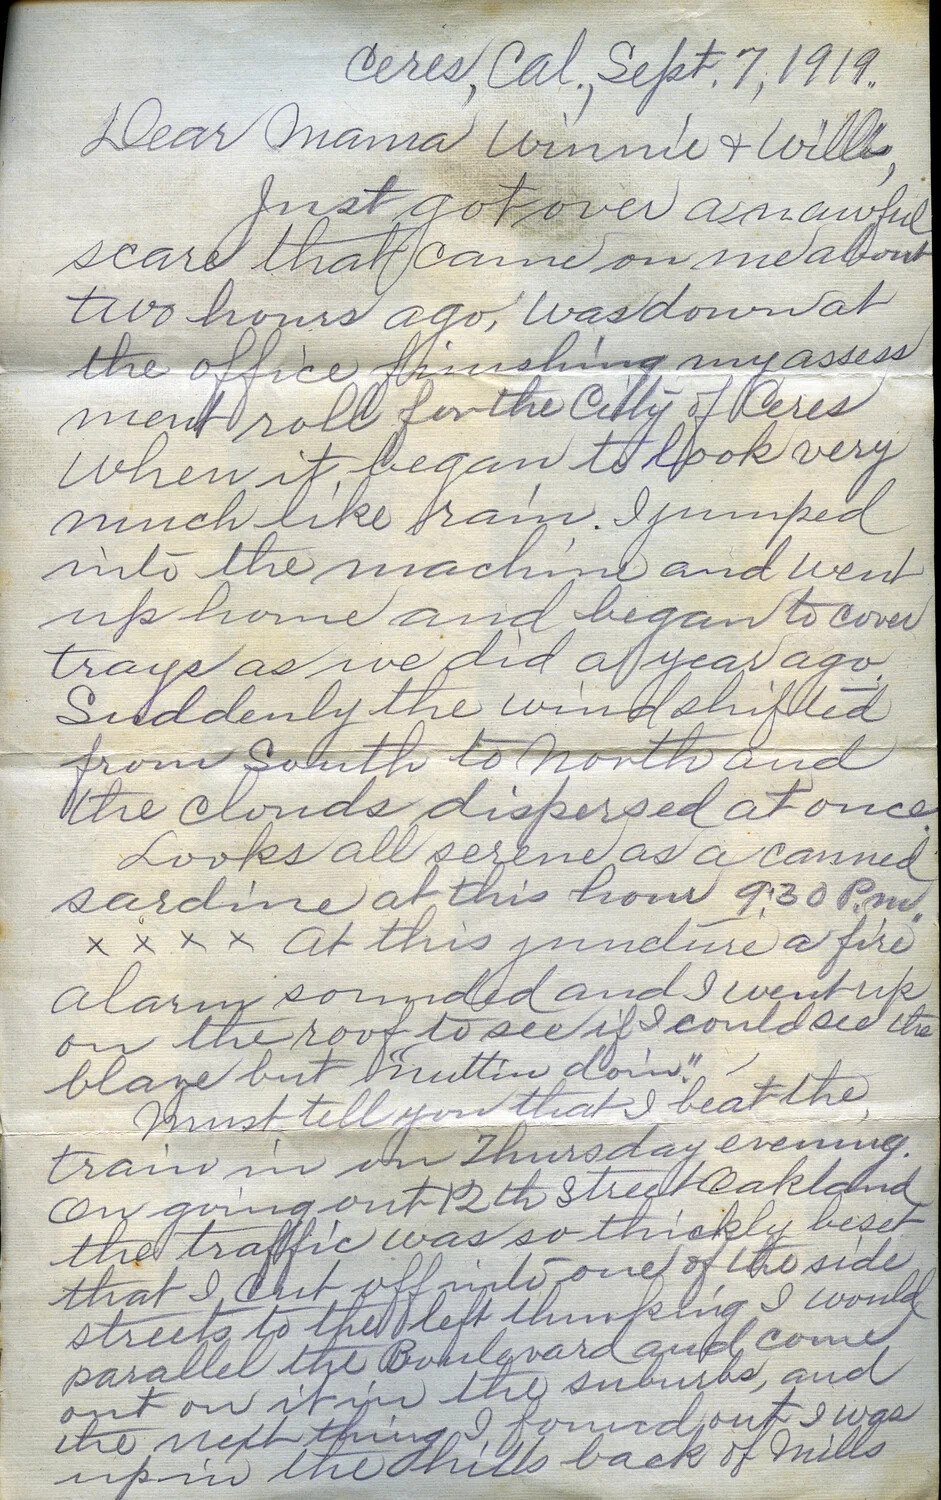 Ceres, Cal., Sept. 7, 1919.
Dear Mama Winnie + Will,
Just got over an awful
scare that came on me about
two hours ago, Was down at
the office finishing my assess
ment roll for the City of Ceres
When it began to look very
much like rain. I jumped
into the machine and went
up home and began to cover
trays as we did a year ago.
Suddenly the wind shifted
from South to North and
the clouds dispersed at once.
Looks all serene as a canned
sardine at this hour 9:30 P.m.
x x x x At this juncture a fire
alarm sounded and I went up
on the roof to see if I could see the
blaze but "nuttin doin".
Must tell you that I beat the
train in on Thursday evening.
On going out 12th Street Oakland
the traffic was so thickly beset
that I cut off into one of the side
streets to the left thinking I would
parallel the Boulevard and come
out on it in the suburbs, and
the next thing I found out I was
up in the hills back of Mills